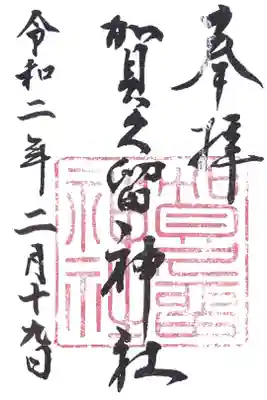 奉拝
加賀久留神社
令和二年二月十九日